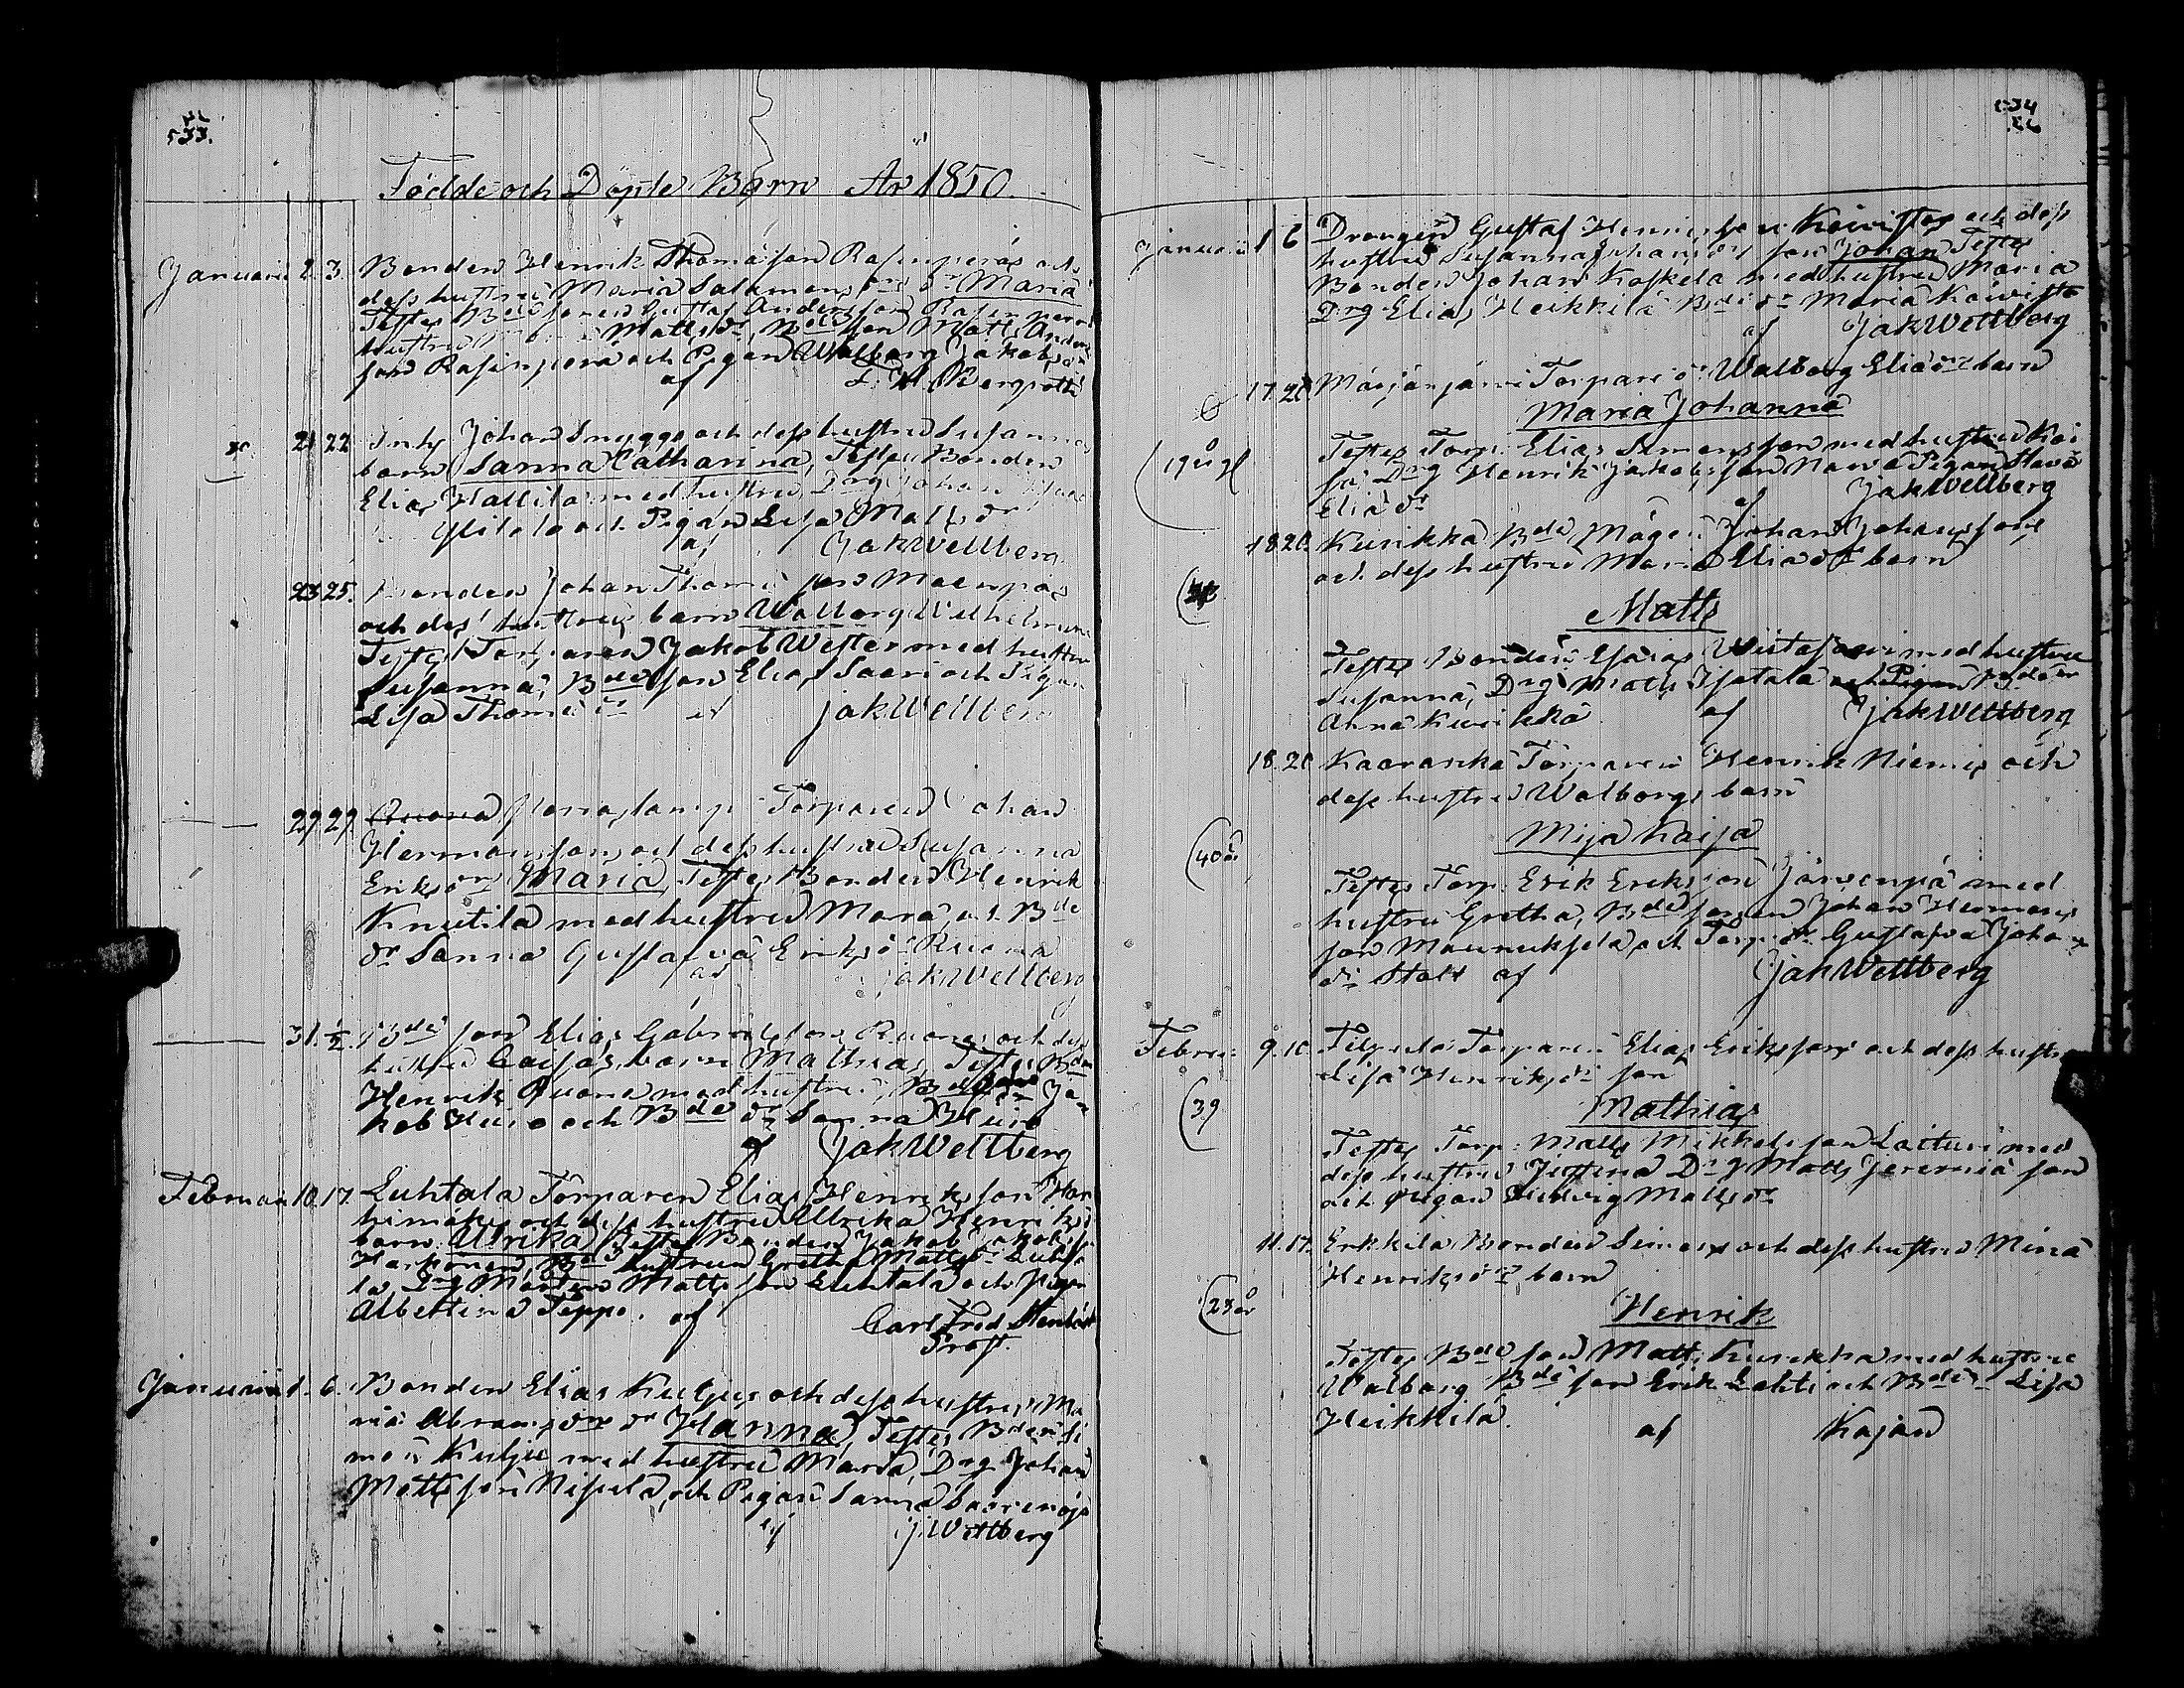 533.
Födde och Döpte Barn År 1850.
Januarii 2. 3. Bonden Henrik Thomasson Rasinperäs och
dess hustrus Maria Salomons dr dr Maria
Testes Bde sonen Gustaf Andersson Rasinperä
hustru Matts dr, Bde son Matts Anders
son Rasinperä och Pigan Walborg Jakobs dr
af Bergroth
21 22 Inhs Johan Snyggs och dess hustrus Susannas
barn Sanna Catharina, Testes Bonden
Elias Hallila med hustru, Drg Johan
Ylitalo och Pigan Lisa Matts dr
af JakWettberg
23 25. Bonden Johan Thomasson Mäenpäs
och dess hustrus barn Walborg Wilhelmina
Testes Torparen Jakob Wester med hustru
Susanna, Bde son Elias Saari och Pigan
Lisa Thomas dr af JakWettberg
29 29 Torparen Johan
Hermansson och dess hustrus Susanna
Eriks dr Maria, Testes Bonden Henrik
Knuutila med hustru Maria, och Bde
dr Sanna Gustafva Eriks dr Ruona
af JakWettberg
31. ½. Bde son Elias Gabrielsson Ruonas och dess
hustrus Caisas barn Mathias, Testes Bden
Henrik Ruona med hustru, Bde son Ja-
kob Huio och Bde dr Sanna Huio
af JakWettberg
Februari 10. 17. Luhtala Torparen Elias Henriksson Har
himäkis och dess hustrus Ulrika Henriks dr
barn Ulrika Testes Bonden Jakob Jakobsson
Harhonen, Bde hustrun Gretha Matts dr Luhta
la Drg Mårten Mattsson Luhtala och Pigan
Albertina Seppo. af
Carl Fred Stenbäck
Prost.
Januarii 1. 6. Bonden Elias Kuljus och dess hustrus Ma
ria Abrams dr dr Hanna, Testes Bden Si
mon Kulju med hustru Maria, Drg Johan
Mattsson Nisula, och Pigan Sanna Saarenoja
af J.Wettberg
534
Januarii 1 6 Drängen Gustaf Henriksson Koivistos och dess
hustrus Susanna Johans dr son Johan Testes
Bonden Johan Koskela med hustru Maria
Drg Elias Heikkilä Bde dr Maria Koivisto
af JakWettberg
17. 20 Torpare dr Walborg Elias dr barn
Maria Johanna
(19 år gl Testes Torp: Elias Simonsson med hustru Kai
sa Drg Henrik Jakobsson Pigan Stava
Elias dr af JakWettberg
18. 20. Kurikka Bde Mågen Johan Johansson
och dess hustrus Maria Elias dr barn
Matts
Testes Bonden Esaias Wiitasaari med hustru
Susanna, Drg Matts Isotalo och Pigan Bde dr
Anna Kurikka af JakWettberg
18. 20 Kaaranka Torparen Henrik Niemis och
dess hustrus Walborgs barn
Mija Kaisa
(40 år Testes Torp: Erik Eriksson Järvenpä med
hustru Gretha, Bde sonen Johan Hermans
son Maunuksela, och Torp. dr Gustafva Johans
dr Stolt af JakWettberg
Febru: 9. 10. Filppula Torparen Elias Eriksson och dess hustru
Lisa Henriks dr son
Mathias
(39 Testes Torp: Matts Mikkelsson Laituri med
dess hustru Justina Drg Matts Jeremiasson
och Pigan Hedvig Matts dr
11. 17. Erkkilä Bonden Simons och dess hustrus Mina
Henriks dr barn
Henrik
(23 år Testes Bde son Matts Kurikka med hustru
Walborg Bde son Erik Lahti och Bde dr Lisa
Heikkilä. af Kajan